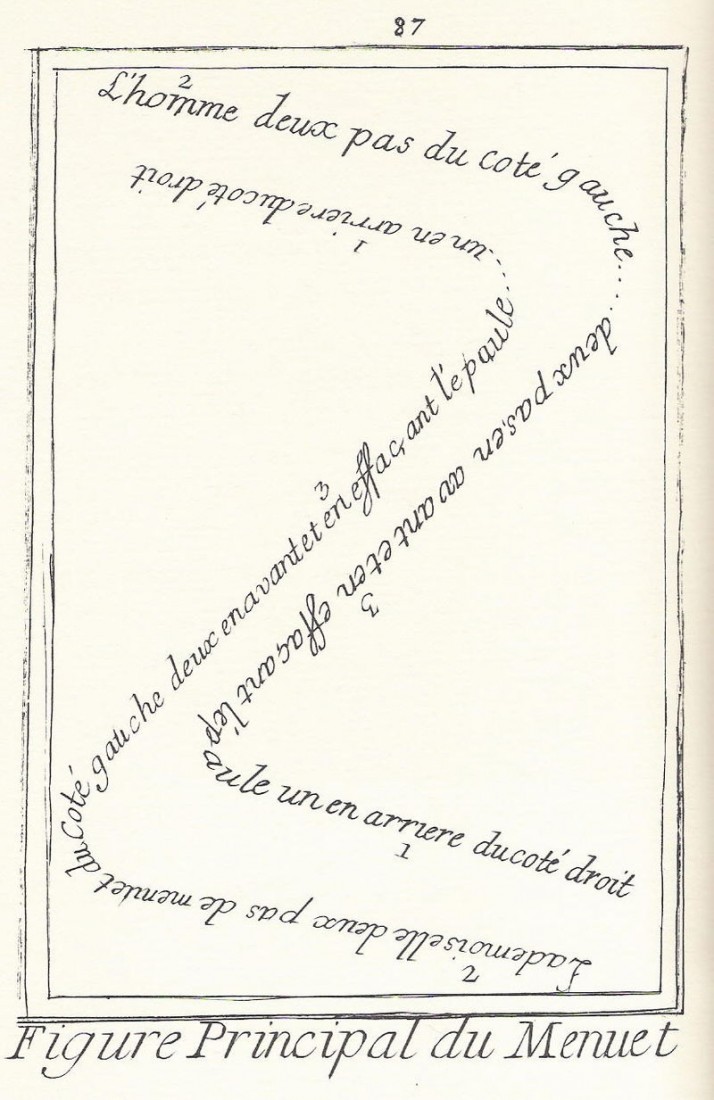 87
2
L'homme deux pas du coté gauche....
deux pas, en avant et en effaçant l'ép
3
aule un en arriere du coté droit
1
Lademoiselle deux pas de menuet
2
du Coté gauche deux en avant et en effaçant l'épaule...
3
...un en arriere du coté droit
1
Figure Principal du Menuet